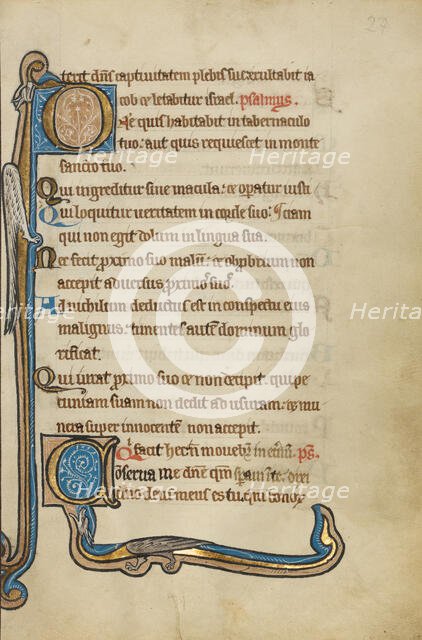 27
terit dns captiuitatem plebis sue exultabit ia
cob et letabitur israel. psalmus.
Dne quis habitabit in tabernaculo
tuo: aut quis requiescet in monte
sancto tuo.
Qui ingreditur sine macula: et operatur iusti
Qui loquitur ueritatem in corde suo: ciam
qui non egit dolum in lingua sua.
Nec fecit proximo suo malu: et obprobrium non
accepit aduersus proximos suos.
Ad nichilum deductus est in conspectu eius
malignus: timentes aute dominum glo
rificat.
Qui iurat proximo suo et non decipit. qui pe
cuniam suam non dedit ad usuram: et mu
nera super innocentem non accepit.
Qi facit hec n mouebit in etnu. ps.
Conserua me dne qm speraui in te: dixi
dno deus meus es tu: qm bonor
Heritage
Heritage
Heritage
Heritage
Heritage
Heritage